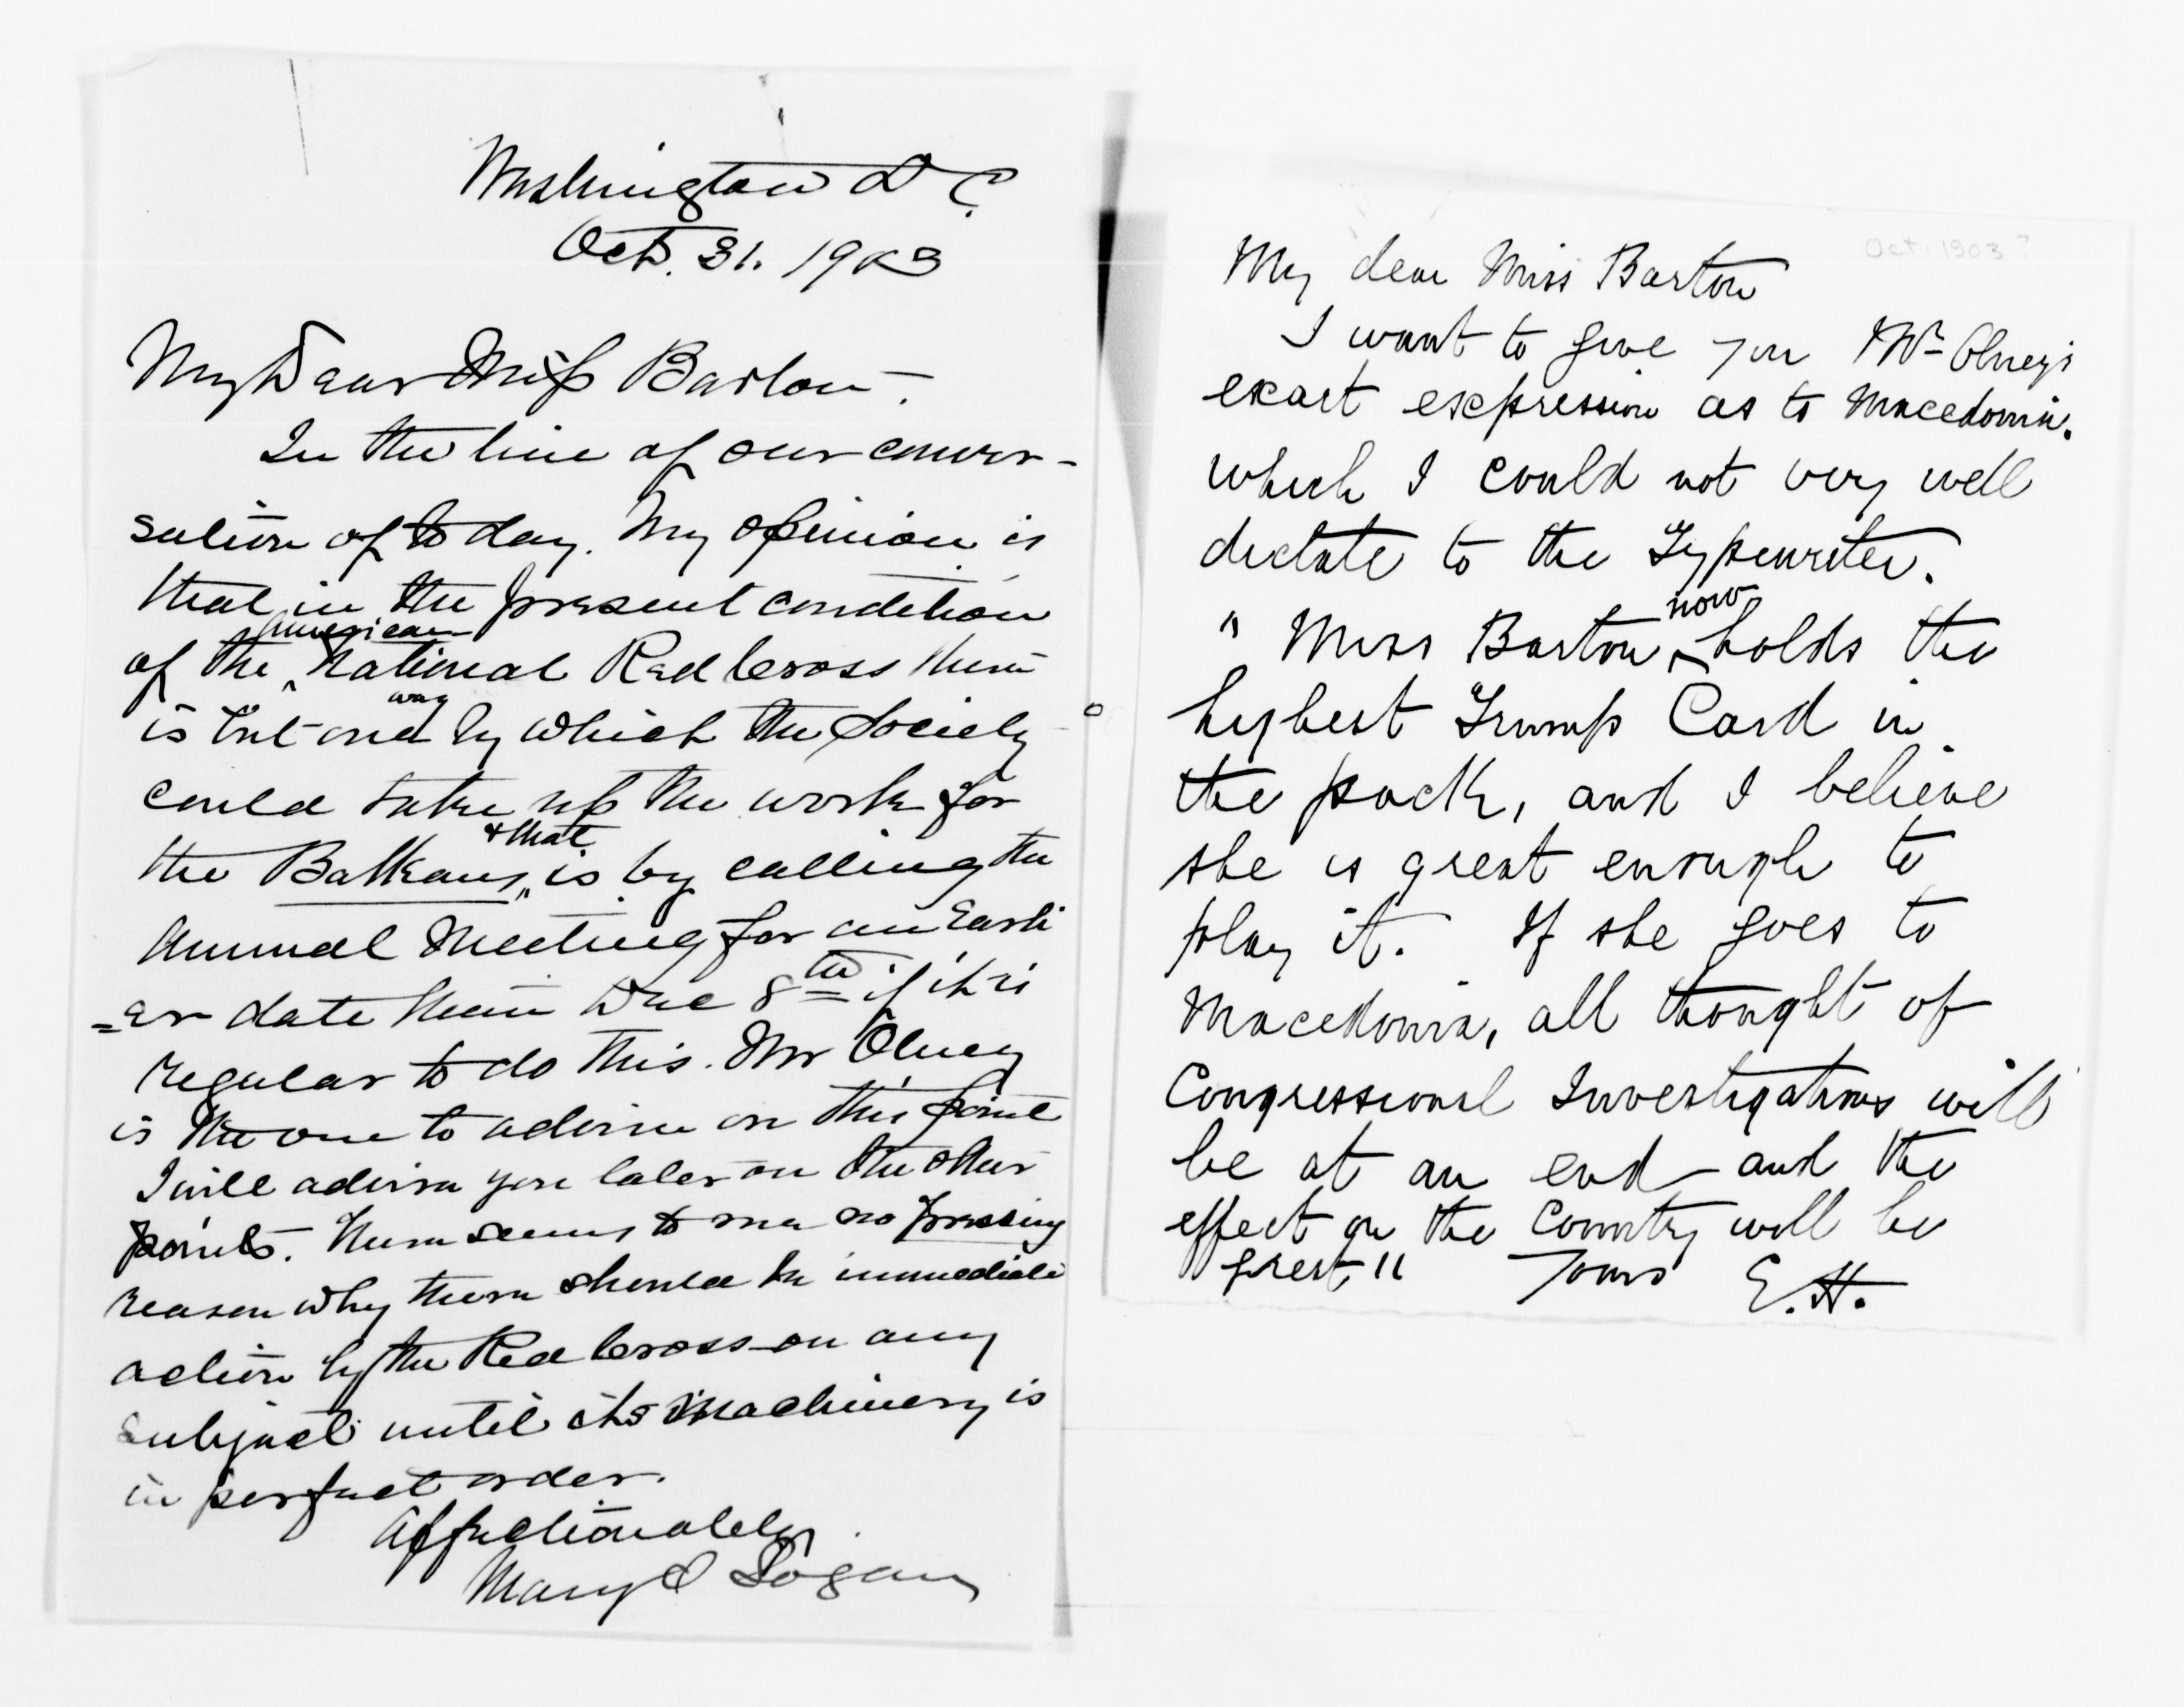 Washington D C.
Oct. 31. 1903
My Dear Miss Barton.
In the line of our conver-
sation of to day. My opinion is
that in the present condition
of the ^American National Red Cross there
is but one way by which the Society
could take up the work for
the Balkans, & that is by calling the
Annual Meeting for an Earli
=er date than Dec 8th if it is
regular to do this. Mr Olney
is the one to advise on this point
I will advise you later on the other
points. There seems to me no pressing
reason why there should be immediate
action by the Red Cross on any
subject until its machinery is
in perfect order.
Affectionately
Mary S Logan
Oct. 1903?
My dear Miss Barton
I want to give you Mr Olney's
exact expression as to Macedonia.
which I could not very well
dictate to the Typewriter.
"Miss Barton ^now holds the
highest Trump Card in
the pack, and I believe
she is great enough to
play it. If she goes to
Macedonia, all thought of
Congressional Investigations will
be at an end – and the
effect on the Country will be
great" Yours E. H.